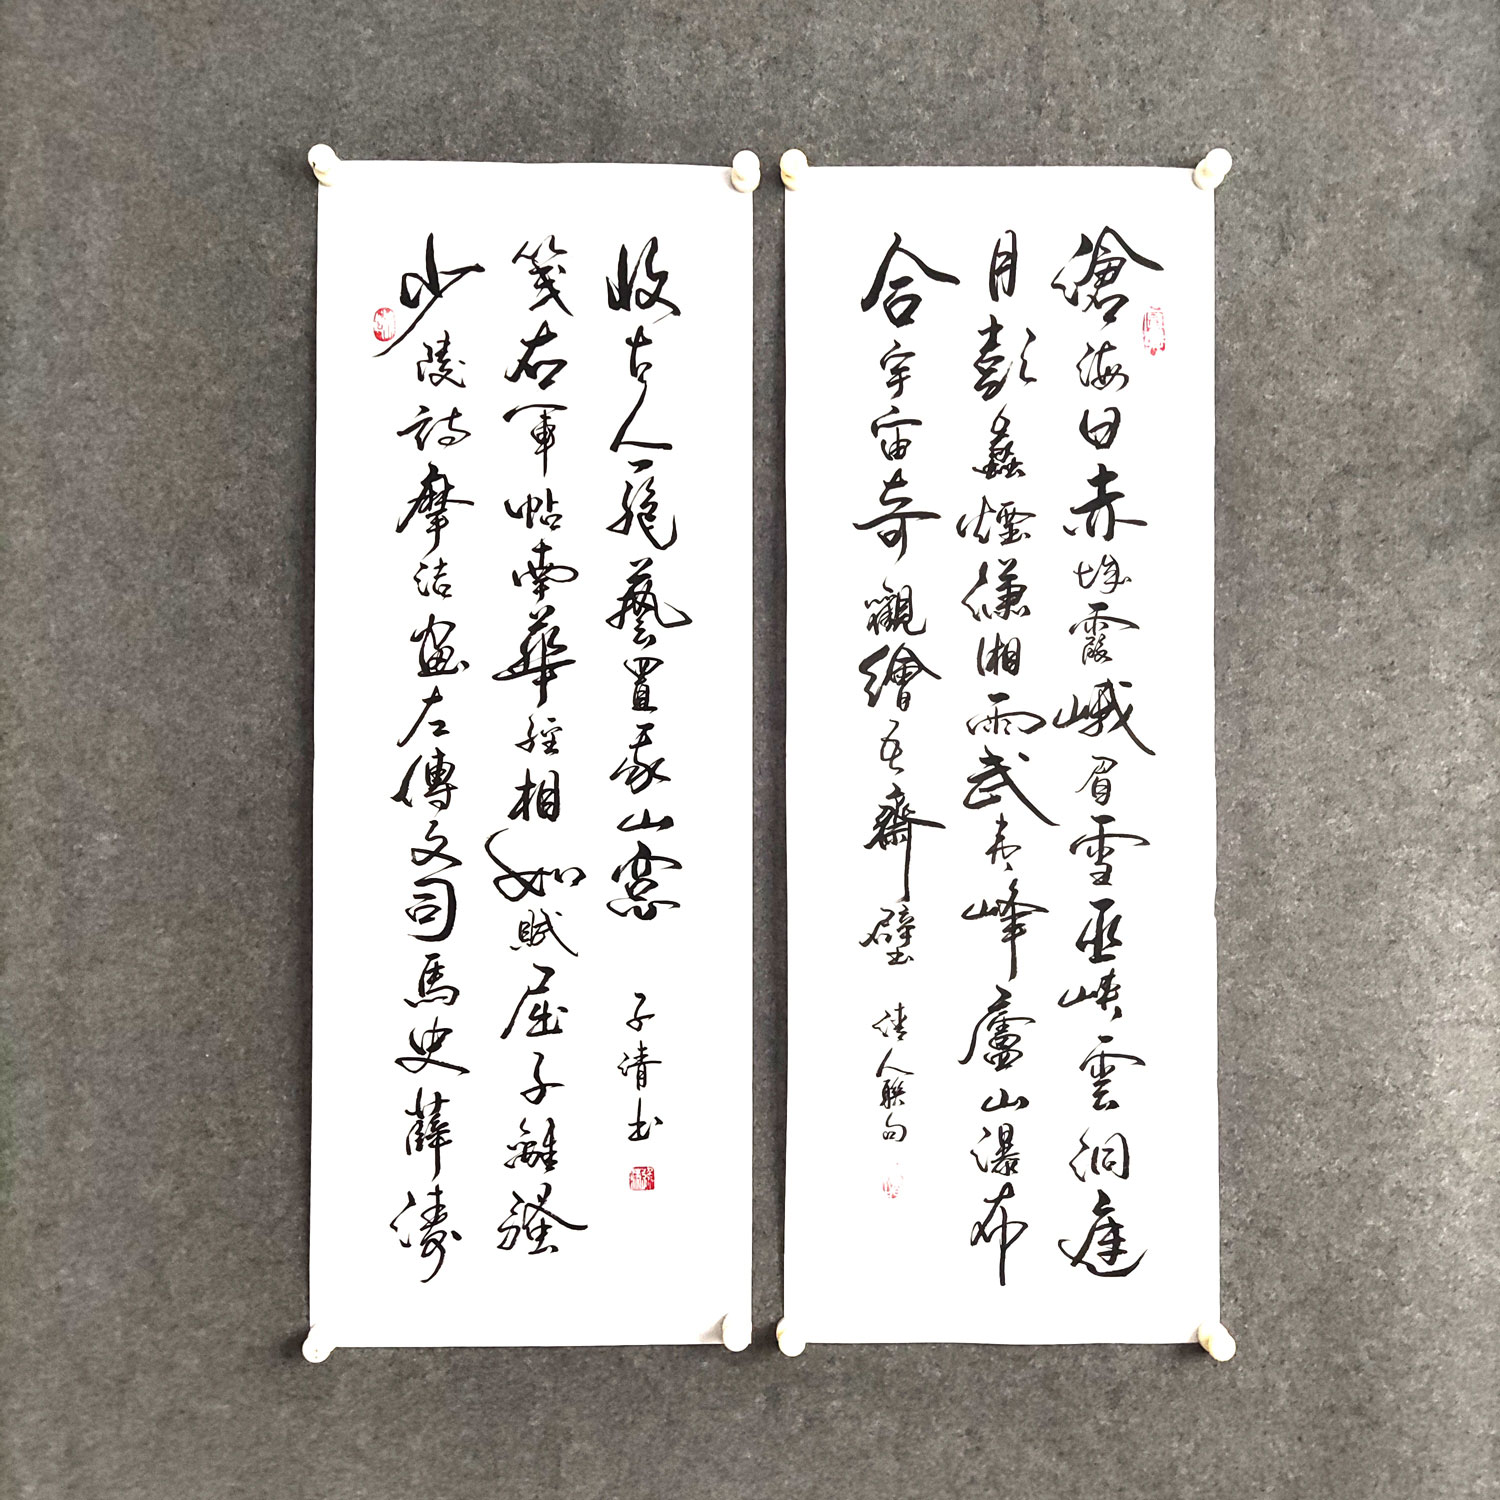 滄海日赤城霞峨眉雪巫峽雲洞庭
月彭蠡煙瀟湘雨武夷峰廬山瀑布
合宇宙奇觀繪吾齋壁
清人聯句
少陵詩摩詰畫左傳文司馬史薛濤
箋右軍帖南華經相如賦屈子離騷
收古今絕藝置我山窻
子清书